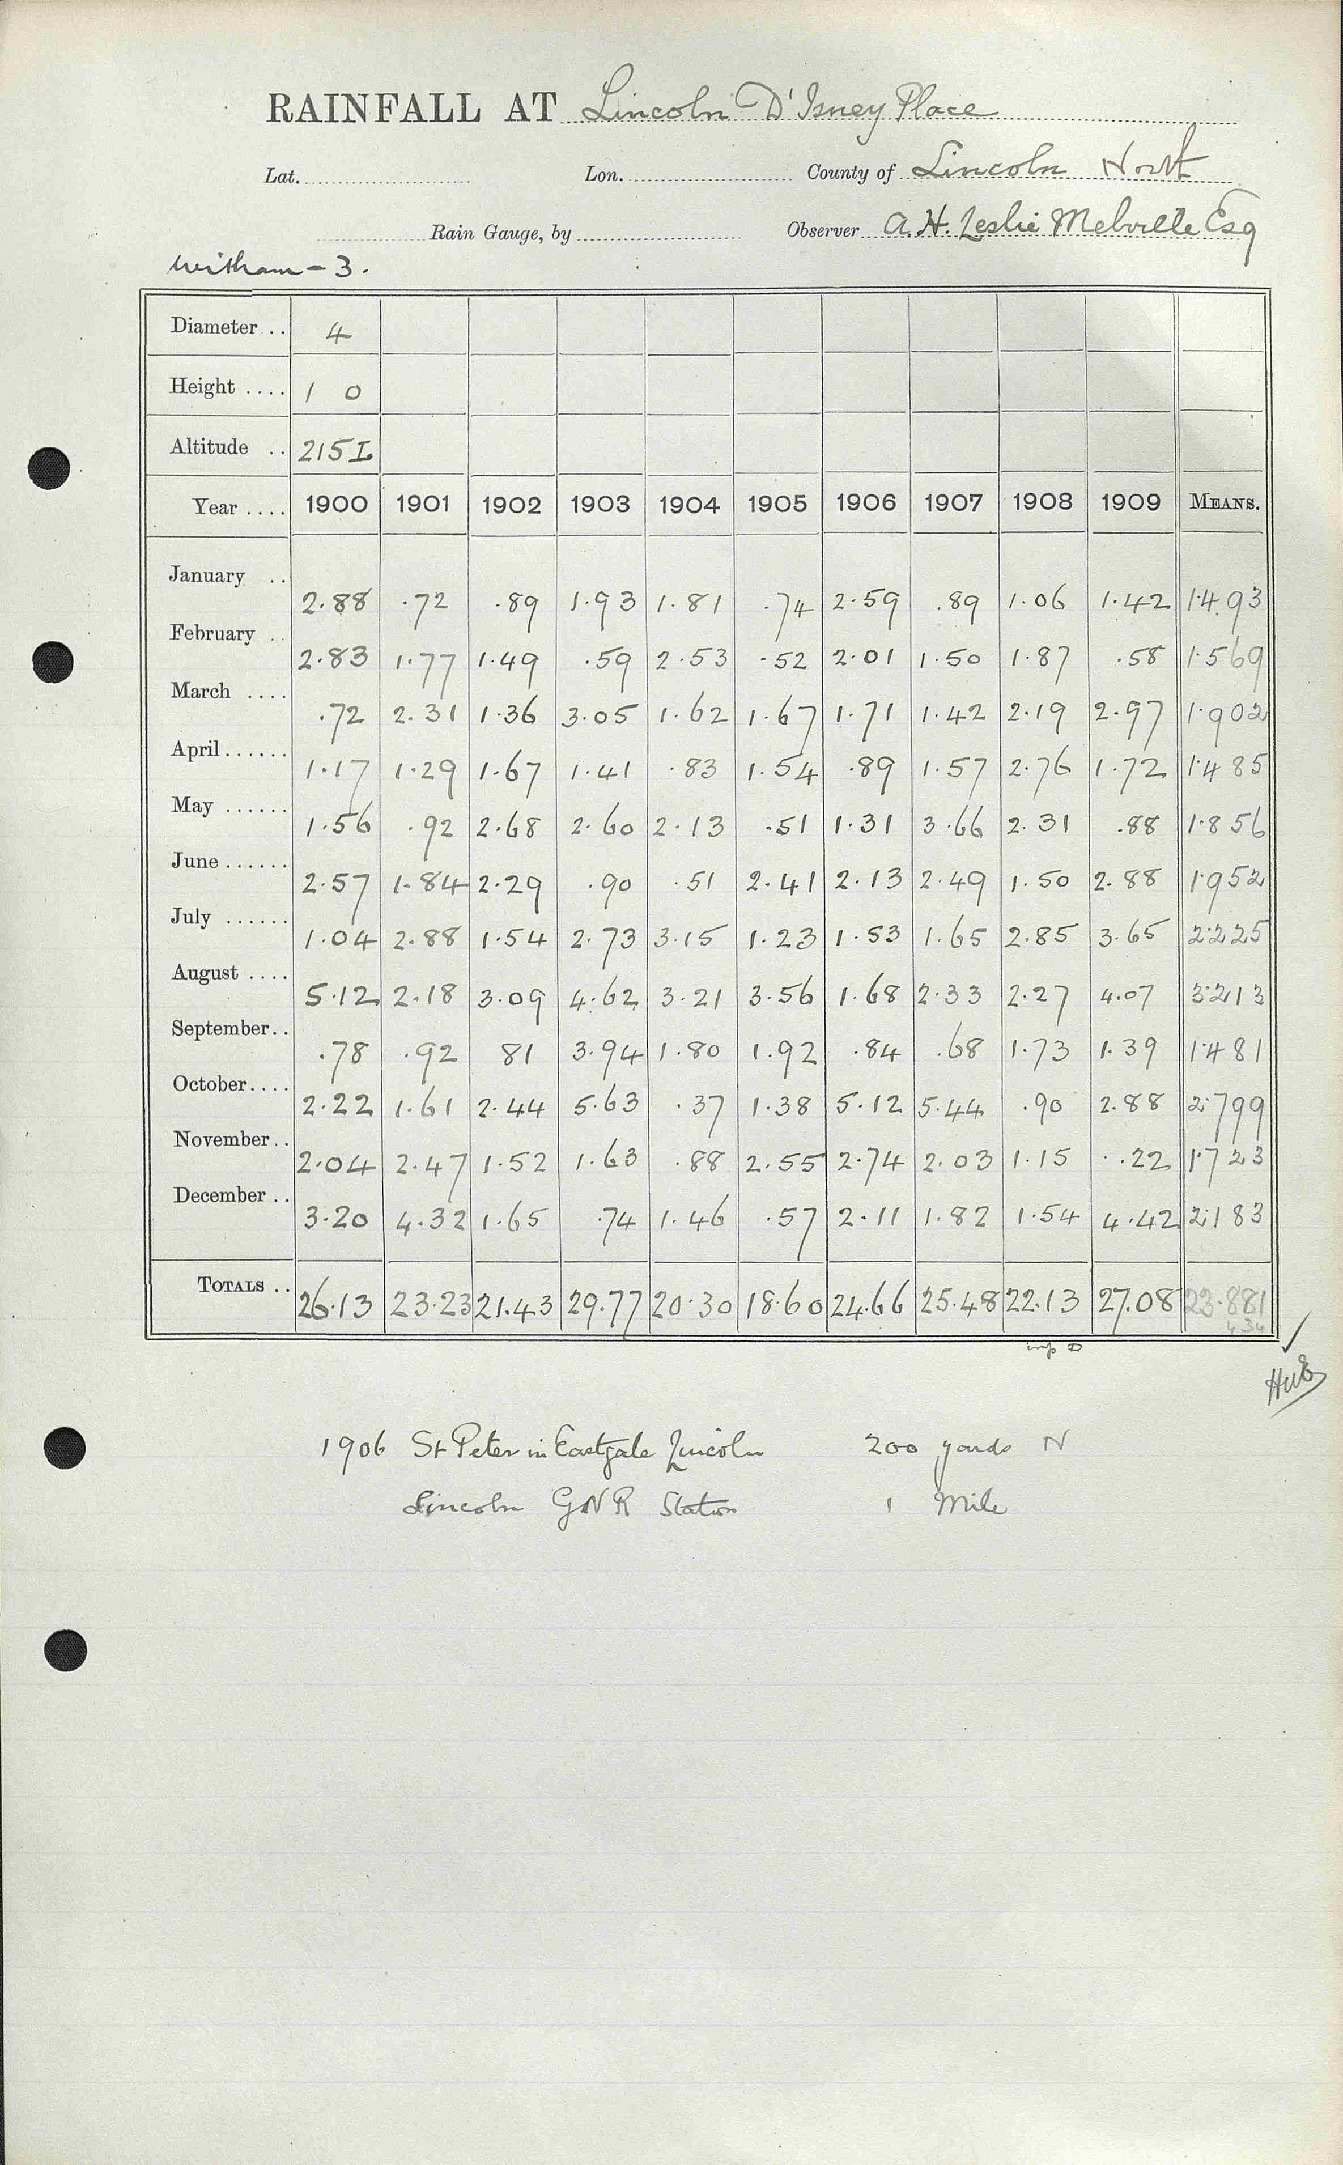 RAINFALL AT Lincoln D'Isney Place
Lat. Lon. County of Lincoln North
Rain Gauge, by Observer A. H. Leslie Melville Esq
Witham - 3.
Diameter .. 4
Height .... 1 0
Altitude .. 215 I
Year .... 1900 1901 1902 1903 1904 1905 1906 1907 1908 1909 MEANS.
January .. 2.88 .72 .89 1.93 1.81 .74 2.59 .89 1.06 1.42 1.493
February .. 2.83 1.77 1.49 .59 2.53 .52 2.01 1.50 1.87 .58 1.569
March .... .72 2.31 1.36 3.05 1.62 1.67 1.71 1.42 2.19 2.97 1.902
April ...... 1.17 1.29 1.67 1.41 .83 1.54 .89 1.57 2.76 1.72 1.485
May ...... 1.56 .92 2.68 2.60 2.13 .51 1.31 3.66 2.31 .88 1.856
June ...... 2.57 1.84 2.29 .90 .51 2.41 2.13 2.49 1.50 2.88 1.952
July ...... 1.04 2.88 1.54 2.73 3.15 1.23 1.53 1.65 2.85 3.65 2.225
August .... 5.12 2.18 3.09 4.62 3.21 3.56 1.68 2.33 2.27 4.07 3.213
September .. .78 .92 81 3.94 1.80 1.92 .84 .68 1.73 1.39 1.481
October .... 2.22 1.61 2.44 5.63 .37 1.38 5.12 5.44 .90 2.88 2.799
November .. 2.04 2.47 1.52 1.63 .88 2.55 2.74 2.03 1.15 .22 1.723
December .. 3.20 4.32 1.65 .74 1.46 .57 2.11 1.82 1.54 4.42 2.183
TOTALS .. 26.13 23.23 21.43 29.77 20.30 18.60 24.66 25.48 22.13 27.08 23.881
1906 St Peter in Eastgate Lincoln 200 yards N
Lincoln GNR Station 1 Mile